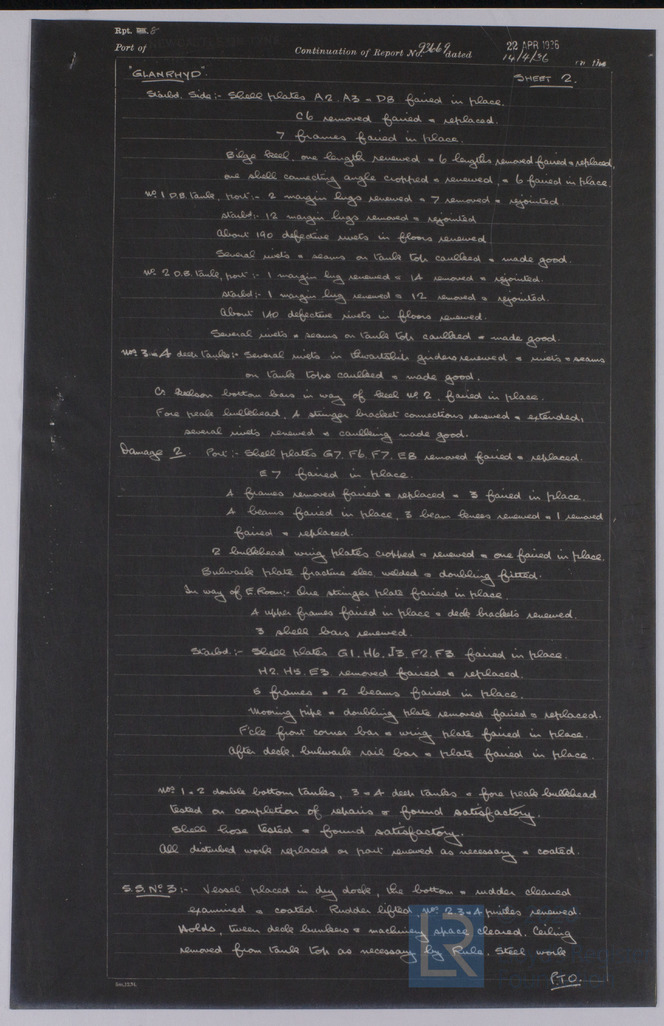 Rpt. 8
Port of
Continuation of Report No. 93669 dated 14/4/36
22 APR 1936
on the
"GLANRHYD".
SHEET 2.
Starbd. Side:- Shell plates A2. A3 & D8 faired in place.
C6 removed faired & replaced.
7 frames faired in place.
Bilge keel. one length renewed & 6 lengths removed faired & replaced,
one shell connecting angle cropped & renewed, & 6 faired in place.
No. 1 D.B. Tank, port:- 2 margin lugs renewed & 7 removed & rejointed.
starbd:- 12 margin lugs removed & rejointed
About 190 defective rivets in floors renewed
Several rivets & seams on tank top caulked & made good.
No. 2 D.B. Tank, port:- 1 margin lug renewed & 14 removed & rejointed.
starbd:- 1 margin lug renewed & 12 removed & rejointed.
About 140 defective rivets in floors renewed.
Several rivets & seams on tank top caulked & made good.
Nos. 3 & 4 deep tanks:- Several rivets in thwartship girders renewed & rivets & seams
on tank tops caulked & made good.
Cr keelson bottom bars in way of keel No. 2. faired in place.
Fore peak bulkhead, 4 stringer bracket connections renewed & extended,
several rivets renewed & caulking made good.
Damage 2. Port:- Shell plates G7. F6. F7. E8 removed faired & replaced.
E7 faired in place.
4 frames removed faired & replaced & 3 faired in place.
4 beams faired in place, 3 beam knees renewed & 1 removed
faired & replaced.
2 bulkhead wing plates cropped & renewed & one faired in place.
Bulwark plate fracture elec. welded & doubling fitted.
In way of E. Room:- One stringer plate faired in place.
4 upper frames faired in place & deck brackets renewed.
3 shell bars renewed.
Starbd:- Shell plates G1. H6. J3. F2. F3 faired in place.
H2. H5. E3 removed faired & replaced.
5 frames & 2 beams faired in place.
Mooring pipe & doubling plate removed faired & replaced.
F'cle front corner bar & wing plate faired in place.
After deck, bulwark rail bar & plate faired in place.
Nos. 1 & 2 double bottom tanks, 3 & 4 deep tanks & fore peak bulkhead
tested on completion of repairs & found satisfactory.
Shell hose tested & found satisfactory.
All disturbed work replaced or part renewed as necessary & coated.
S.S. No. 3:- Vessel placed in dry dock, the bottom & rudder cleaned
examined & coated. Rudder lifted, Nos. 2.3 & 4 pintles renewed.
Holds, tween deck bunkers & machinery space cleared. Ceiling
removed from tank top as necessary by Rule. Steel work
P.T.O.
LR